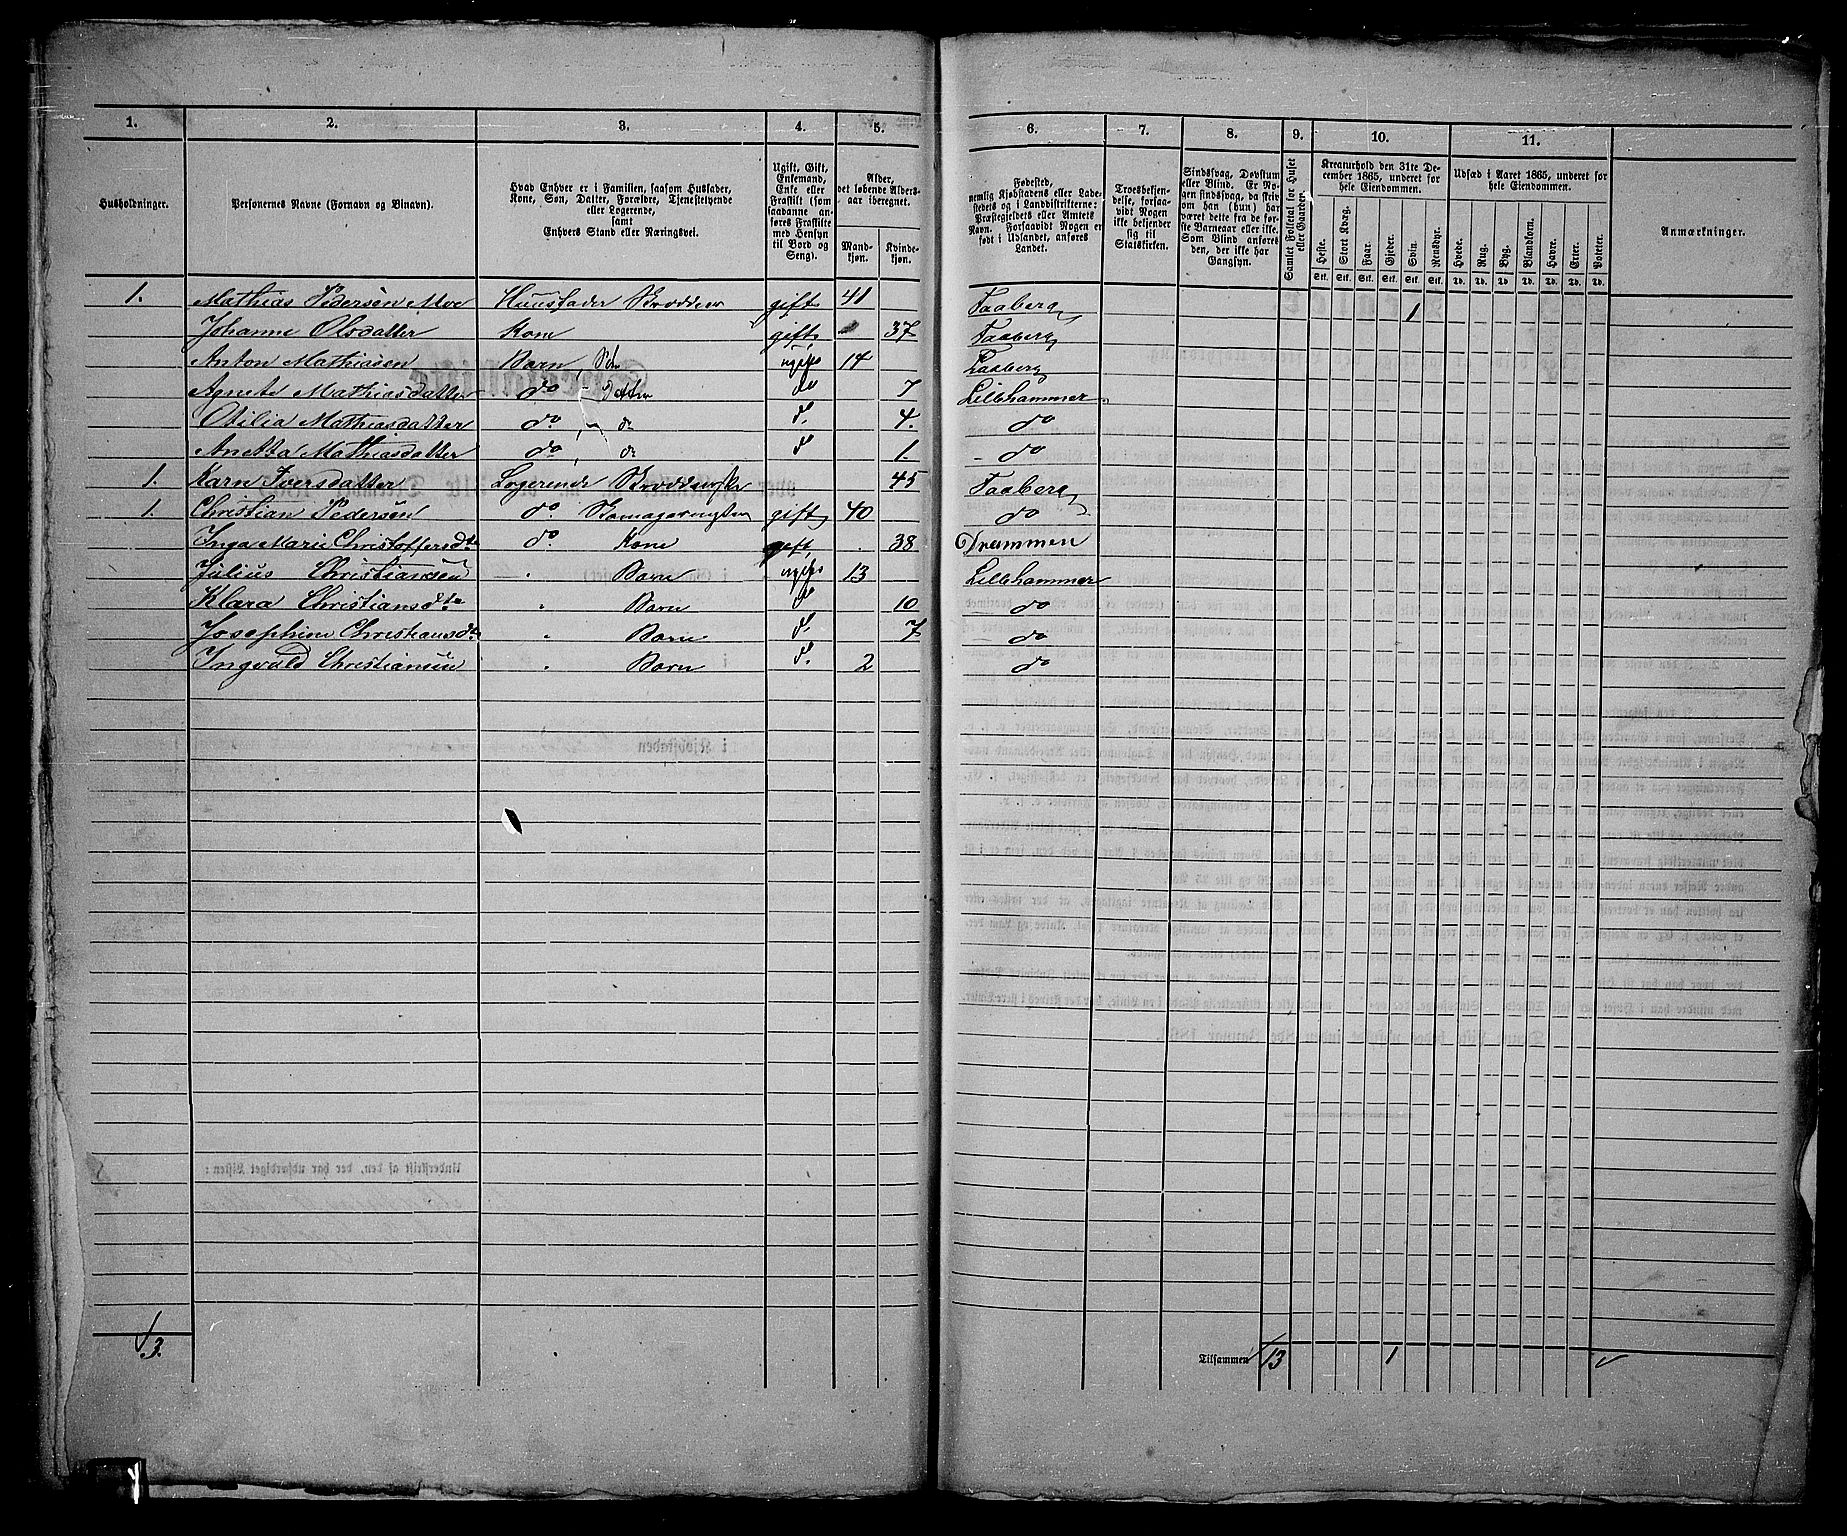 1. 2. 3. 4. 5. 6. 7. 8. 9. 10. 11.
Husholdninger.
Personernes Navne (Fornavn og Binavn).
Hvad Enhver er i Familien, saasom Husfader,
Kone, Søn, Datter, Forældre, Tjenestetyende
eller Logerende,
samt
Enhvers Stand eller Næringsvei.
Ugift, Gift,
Enkemand,
Enke eller
Fraskilt (som
saadanne an-
føres Fraskilte
med Hensyn
til Bord og
Seng).
Alder,
det løbende Alders-
aar iberegnet.
Mand-
kjøn.
Kvinde-
kjøn.
Fødested,
nemlig Kjøbstadens eller Lade-
stedets og i Landdistrikterne:
Præstegjeldets eller Amtets
Navn. Forsaavidt Nogen er
født i Udlandet, anføres
Landet.
Troesbekjen-
delse, forsaa-
vidt Nogen
ikke bekjender
sig til
Statskirken.
Sindssvag, Døvstum
eller Blind. Er No-
gen sindssvag, da skrives
om han (hun) har
været dette fra de før-
ste Barneaar eller ei.
Som Blind anføres
den, der ikke har
Gangsyn.
Samlet Folketal for Huset
eller Gaarden.
Kreaturhold den 31te De-
cember 1865, underet for
hele Eiendommen.
Heste. Stort Kvæg. Faar. Gjeder. Sviin. Rensdyr.
Stk. Stk. Stk. Stk. Stk. Stk.
Udsæd i Aaret 1865, underet for
hele Eiendommen.
Hvede. Rug. Byg. Blandkorn. Havre. Erter. Poteter.
Td. Td. Td. Td. Td. Td. Td.
Anmærkninger.
1. Mathias Pedersen Moe Huusfader Skrædder gift 41 Faaberg 1
Johanne Olsdatter Kone gift 37 Faaberg
Anton Mathiasen Barn, Søn ugift 14 Faaberg
Agnete Mathiasdatter do - Datter do 7 Lillehammer
Otilia Mathiasdatter do. do d. 4. do
Anetta Mathiasdatter do, do d 1 - do
1. Karn Iversdatter Logerende 45 Faaberg
1. Christian Pedersen do. gift 40 do
Inga Marie Christoffersdtr do. Kone gift 38 Drammen
Julius Christiansen " Barn ugift 13 Lillehammer
Klara Christiansdtr " Barn d 10 do
Josephine Christiansdtr " Barn d. 7 do
Ingvald Christiansen " Barn d. 2 do
3.
Tilsammen 13 1